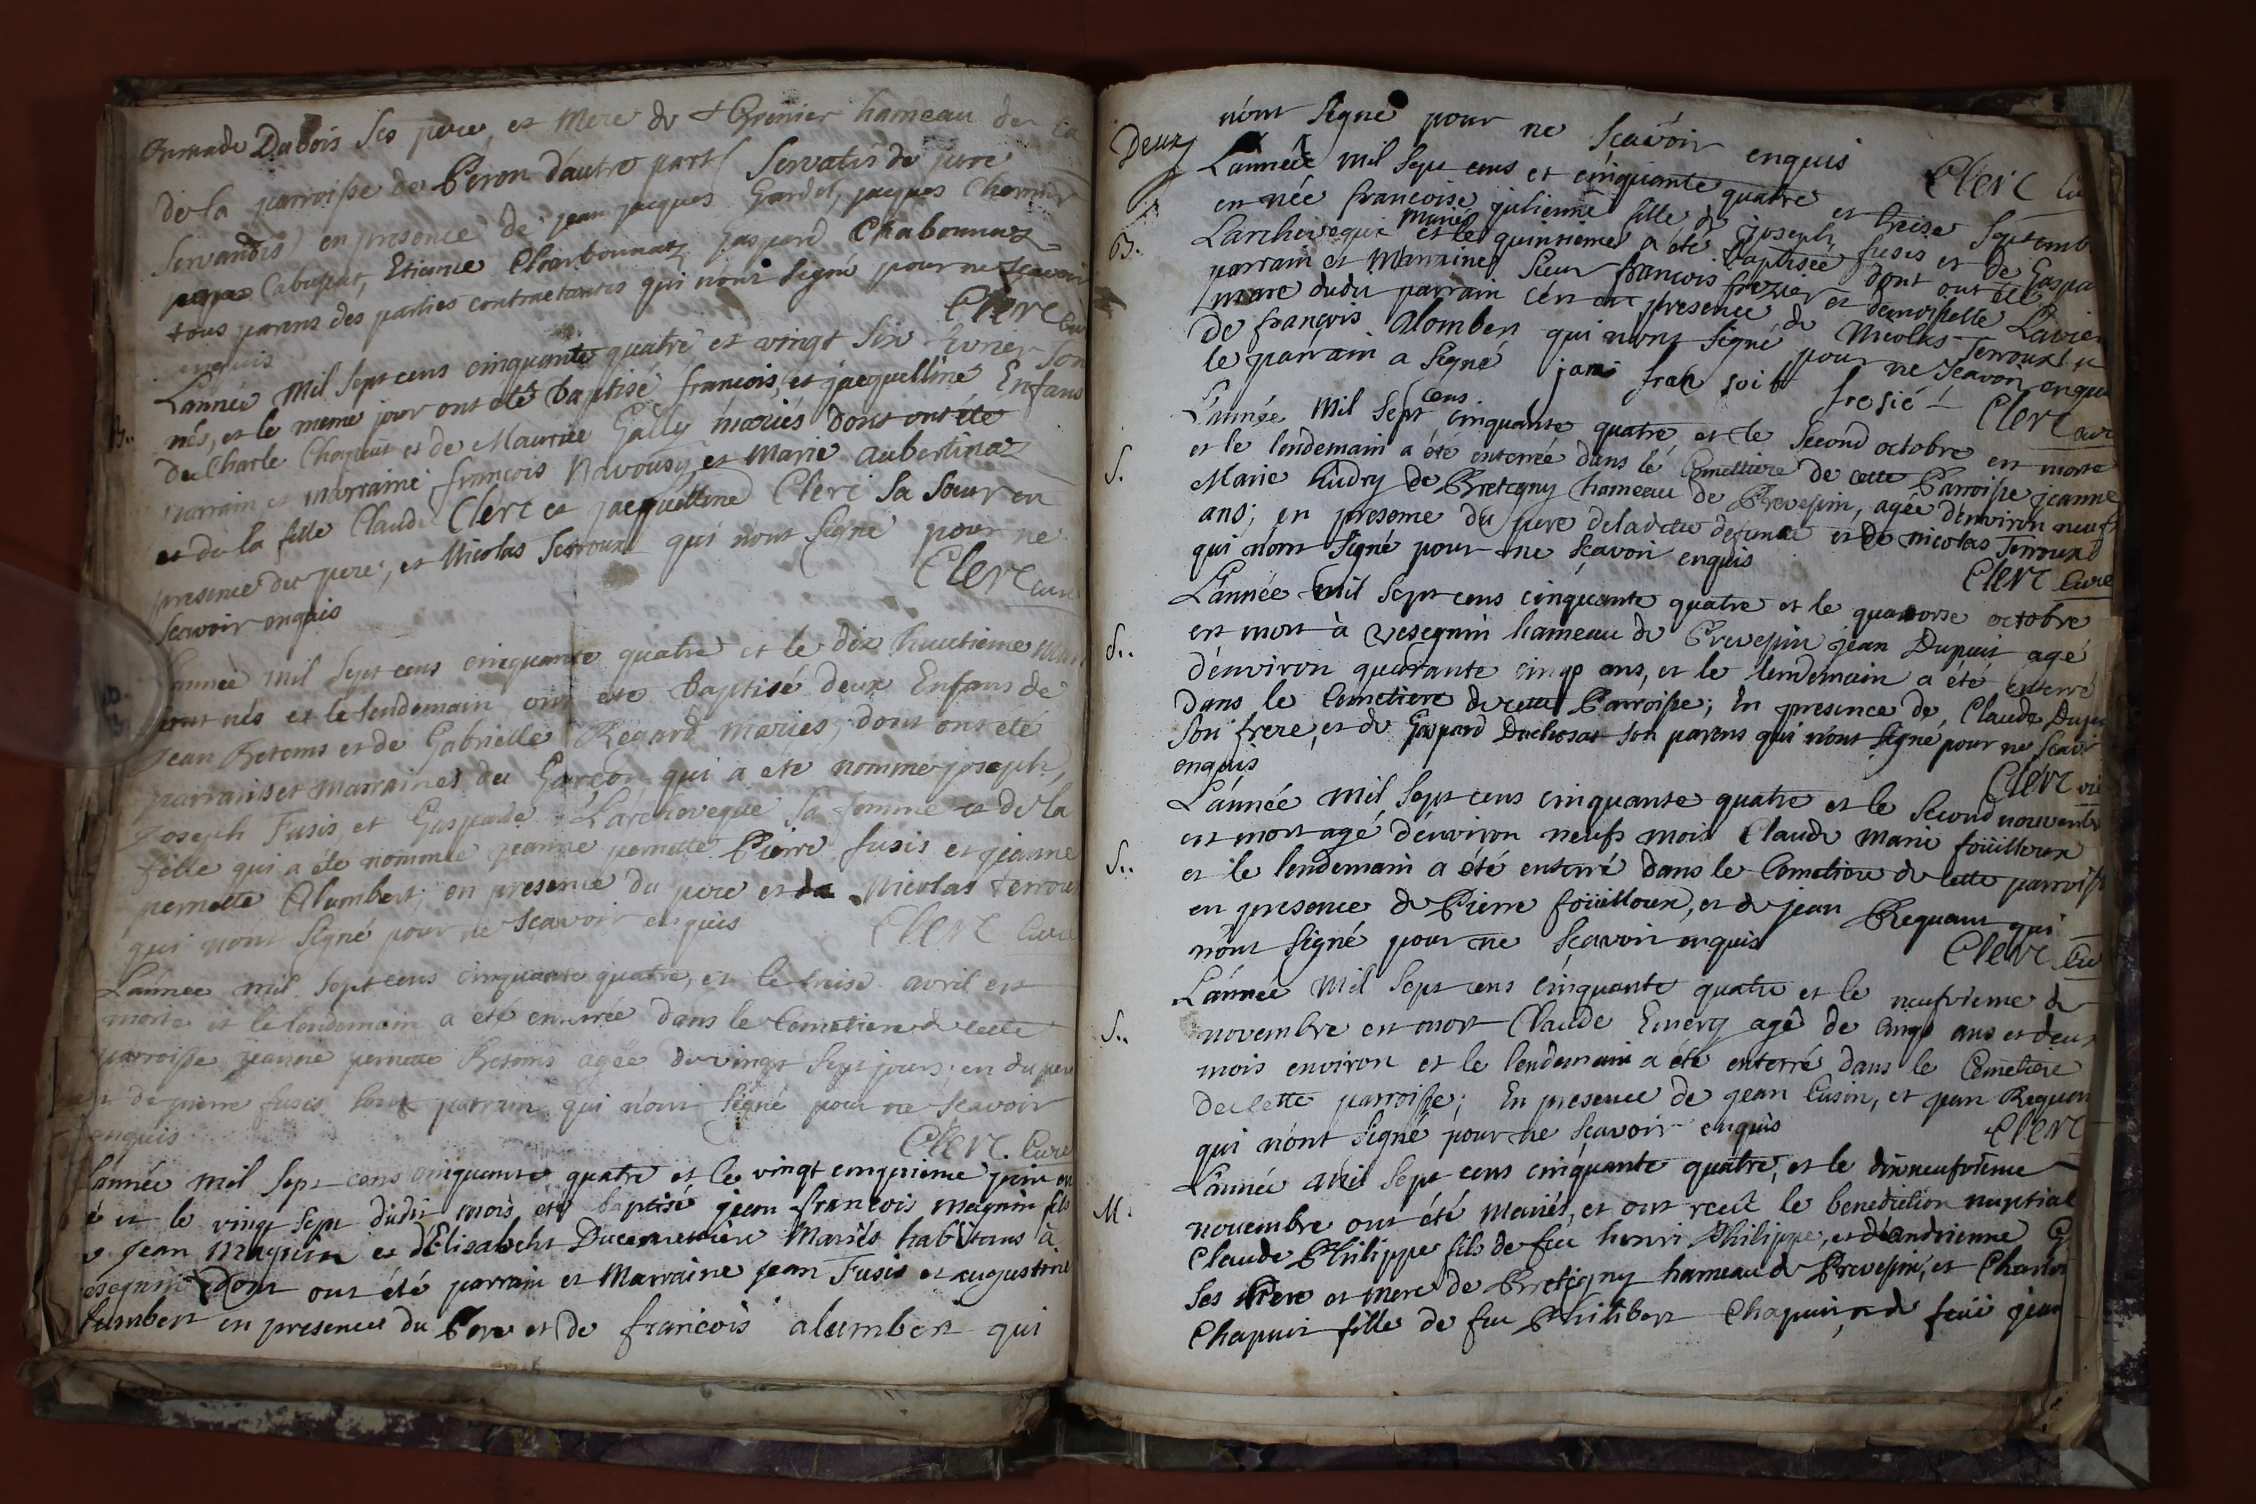 Dubois ses pere et mere de St Grenier hameau de la
de la parroisse de Péron d'autre part servatis de jure
servandis en presence de jean jacques Gardel, jacques Charnier
Cabussat, Etienne Charbonnaz gaspard Chabonnaz
tous parens des parties contractantes qui n'ont signé pour ne scavoir
enquis Clerc Curé
L'année mil sept cens cinquante quatre et vingt six fevrier sont
nés, et le meme jour ont eté baptisé francois, et jacquelline Enfans
de Charle Chapuit et de Maurise Gally mariés dont ont été
parrain et marraine francois Navousy et Marie aubertinaz
et de la fille Claude Clerc et jacquelline Clerc sa soeur en
presence du pere, et Nicolas Terroux qui n'ont signé pour ne
scavoir enquis Clerc curé
L'année mil sept cens cinquante quatre et le dix huitieme mars
sont nés et le lendemain ont eté baptisé deux Enfans de
jean Betems et de Gabrielle Regard mariés, dont ont eté
parrains et marraines du Garçon qui a eté nommé joseph,
joseph Fusis, et Gasparde Larcheveque sa femme et de la
fille qui a eté nommée jeanne pernette Pierre fusis et jeanne
pernette Alumbert; en presence du pere et de Nicolas terroux
qui n'ont signé pour ne scavoir enquis Clerc Curé
L'année mil sept cens cinquante quatre, et le treise avril est
morte et le lendemain a eté enterrée dans le Cemetiere de cette
parroisse jeanne pernette Betems agée de vingt sept jours; en du pere
et de pierre fusis parrain qui n'ont signé pour ne scavoir
enquis Clerc. Curé
L'année mil sept cens cinquante quatre et le vingt cinquieme juin est
né et le vingt sept dudit mois, eté baptisé jean francois magnin fils
de jean Magnin et d'Elisabeth Ducimetiere Mariés habitans à
Vesegnin dont ont été parrain et Marraine jean Fusis et augustine
lumbert en presence du Pere et de francois alumbert qui
n'ont signé pour ne sçavoir enquis
Deux
Clerc Cu
L'année mil sept cens et cinquante quatre et treise Septemb
B.
en née francoise julienne fille de joseph fusis et de Gaspa
Larcheveque mariés et le quinsieme a été baptisée dont ont été
parrain et Marraine Sieur francois frezier et demoiselle Lavier
mere dudit parrain en presence de Nicolas Terroux et
de françois Alomber qui n'ont signé pour ne scavoir enquis
le parrain a signé fresié Clerc curé
L'année mil sept cens cinquante quatre et le second octobre est morte
S.
et le lendemain a été enterrée dans le Cemettiere de cette Parroisse jeanne
Marie Audry de Bretegny hameau de Prevessin, agée d'environ neuf
ans; en presence du pere de la ditte defunte et de nicolas Terroux
qui n'ont signé pour ne sçavoir enquis Clerc Curé
L'année mil sept cens cinquante quatre et le quatorse octobre
S..
est mort à Vesegnin hameau de Prevessin jean Dupuis agé
d'environ quarante cinqs ans, et le lendemain a été enterré
dans le Cemetiere de cette Parroisse; En presence de Claude Dupui
son frere, et de Gaspard Duchosat son parens qui n'ont signé pour ne scavoir
enquis Clerc
L'année mil sept cens cinquante quatre et le second novembre
S..
est mort agé d'environ neufs mois Claude Marie foüilloux
et le lendemain a été enterré dans le Cemetiere de cette parroisse
en presence de Pierre foüilloux, et de jean Requant qui
n'ont signé pour ne sçavoir enquis Clerc Cu
L'année mil sept cens cinquante quatre et le neufvieme de
S..
novembre est mort Claude Emery agé de cinqs ans et deux
mois environ et le lendemain a été enterré dans le Cemetiere
de cette parroisse; En presence de jean Cusin, et jean Requan
qui n'ont signé pour ne sçavoir enquis Clerc
L'année mil sept cens cinquante quatre, et le dixneufvieme
M.
novembre ont été mariés, et ont reçu le benediction nuptial
Claude Philippe fils de feu henri Philippe, et d'andrienne
ses Pere et mere de Bretigny hameau de Prevessin, et Charlot
Chapuis fille de feu Philibert Chapuis, et de feüe jean